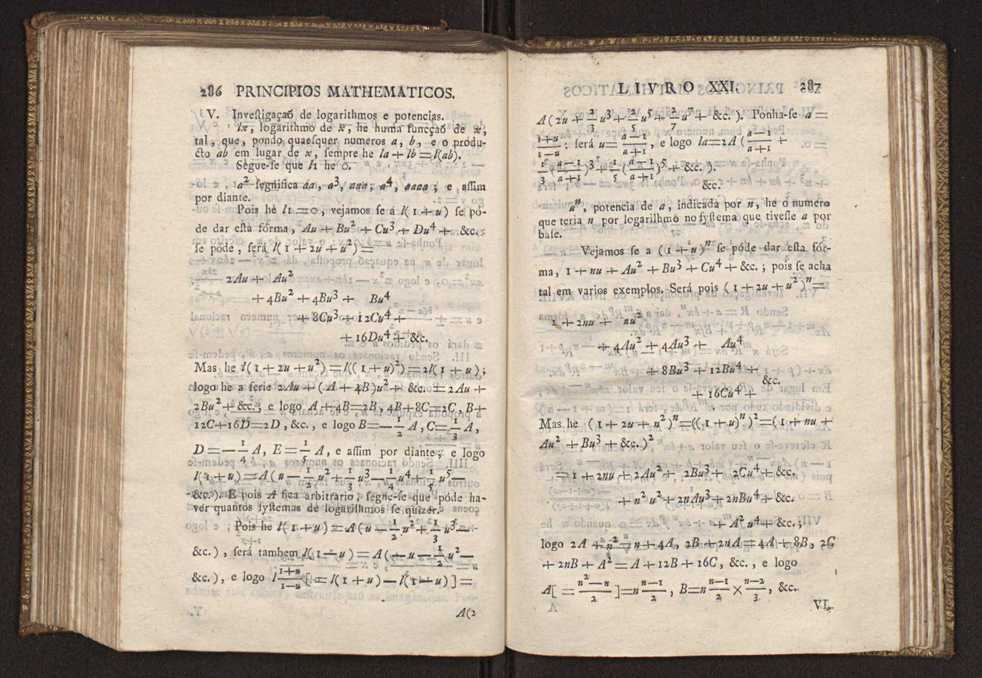 286 PRINCIPIOS MATHEMATICOS.
V. Investigaçaõ de logarithmos e potencias.
lx, logarithmo de x, he huma funcçaõ de x,
tal, que, pondo quaesquer numeros a, b, e o produ-
cto ab em lugar de x, sempre he la + lb = l(ab).
Segue-se que l1 he 0.
a² significa aa, a³, aaa; a⁴, aaaa; e assim
por diante.
Pois he l1 = 0, vejamos se á l(1 + u) se pó-
de dar esta fórma, Au + Bu² + Cu³ + Du⁴ + &c.
Se póde, será l(1 + 2u + u²) =
2Au + Au²
+ 4Bu² + 4Bu³ + Bu⁴
+ 8Cu³ + 12Cu⁴ +
+ 16Du⁴ + &c.
Mas he l(1 + 2u + u²) = l((1 + u)²) = 2l(1 + u);
logo he a serie 2Au + (A + 4B)u² + &c. = 2Au +
2Bu² + &c.; e logo A + 4B = 2B, 4B + 8C = 2C, B +
12C + 16D = 2D, &c., e logo B = − 1/2 A, C = 1/3 A,
D = − 1/4 A, E = 1/5 A, e assim por diante; e logo
l(1 + u) = A(u − 1/2 u² + 1/3 u³ − 1/4 u⁴ + 1/5 u⁵
&c.). E pois A fica arbitrario, segue-se que póde ha-
ver quantos systemas de logarithmos se quizer.
Pois he l(1 + u) = A(u − 1/2 u² + 1/3 u³ −
&c.), será tambem l(1 − u) = A(− u − 1/2 u² −
&c.), e logo l (1+u)/(1−u) [= l(1 + u) − l(1 − u)] =
A(2
LIVRO XXI. 287
A(2u + 2/3 u³ + 2/5 u⁵ + 2/7 u⁷ + &c.). Ponha-se a =
(1+u)/(1−u); será u = (a−1)/(a+1), e logo la = 2A((a−1)/(a+1) +
1/3 (a−1)/(a+1))³ + 1/5 ((a−1)/(a+1))⁵ + &c.).
&c.
aⁿ, potencia de a, indicada por n, he o numero
que teria n por logarithmo no systema que tivesse a por
base.
Vejamos se a (1 + u)ⁿ se póde dar esta fór-
ma, 1 + nu + Au² + Bu³ + Cu⁴ + &c.; pois se acha
tal em varios exemplos. Será pois (1 + 2u + u²)ⁿ =
1 + 2nu + nu²
+ 4Au² + 4Au³ + Au⁴
+ 8Bu³ + 12Bu⁴ +
&c.
+ 16Cu⁴ +
Mas he (1 + 2u + u²)ⁿ = ((1 + u)ⁿ)² = (1 + nu +
Au² + Bu³ + &c.)²
= 1 + 2nu + 2Au² + 2Bu³ + 2Cu⁴ + &c.
+ n²u² + 2nAu³ + 2nBu⁴ + &c.
+ A²u⁴ + &c.;
logo 2A + n² = n + 4A, 2B + 2nA = 4A + 8B, 2C
+ 2nB + A² = A + 12B + 16C, &c., e logo
A[= (n²−n)/2] = n (n−1)/2, B = n (n−1)/2 × (n−2)/3, &c.
VI.